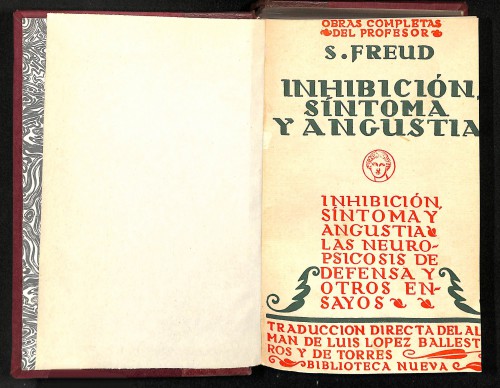 OBRAS COMPLETAS
DEL PROFESOR
S. FREUD
INHIBICIÓN,
SÍNTOMA
Y ANGUSTIA
INHIBICIÓN,
SÍNTOMA Y
ANGUSTIA
LAS NEURO-
PSICOSIS DE
DEFENSA Y
OTROS EN-
SAYOS
TRADUCCION DIRECTA DEL AL
MAN DE LUIS LOPEZ BALLEST
ROS Y DE TORRES
BIBLIOTECA NUEVA